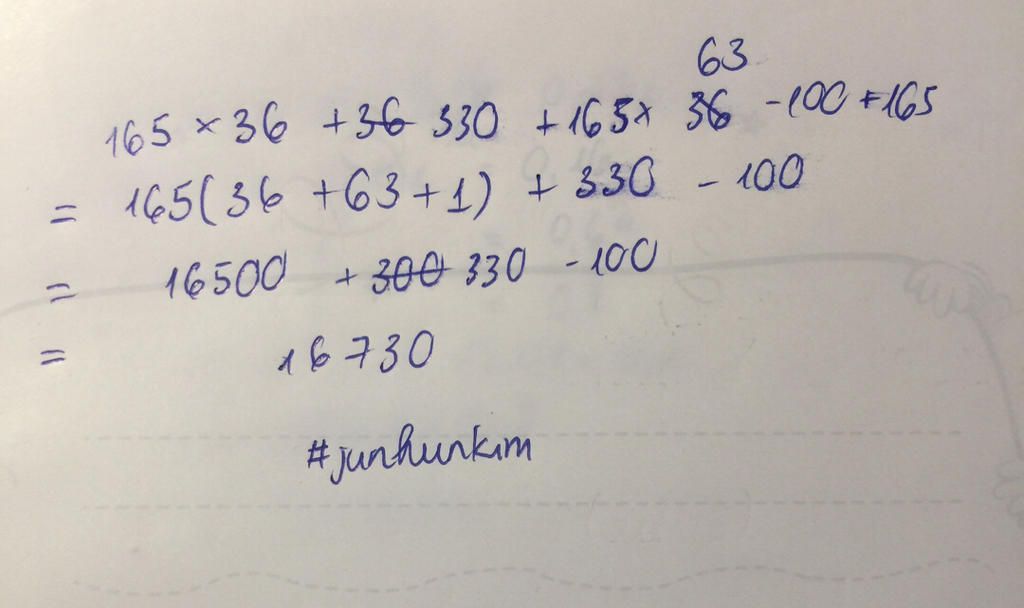 63
165 × 36 + 36 330 + 165 × 36 - 100 + 165
= 165(36 + 63 + 1) + 330 - 100
= 16500 + 300 330 - 100
= 16730
#junhunkim